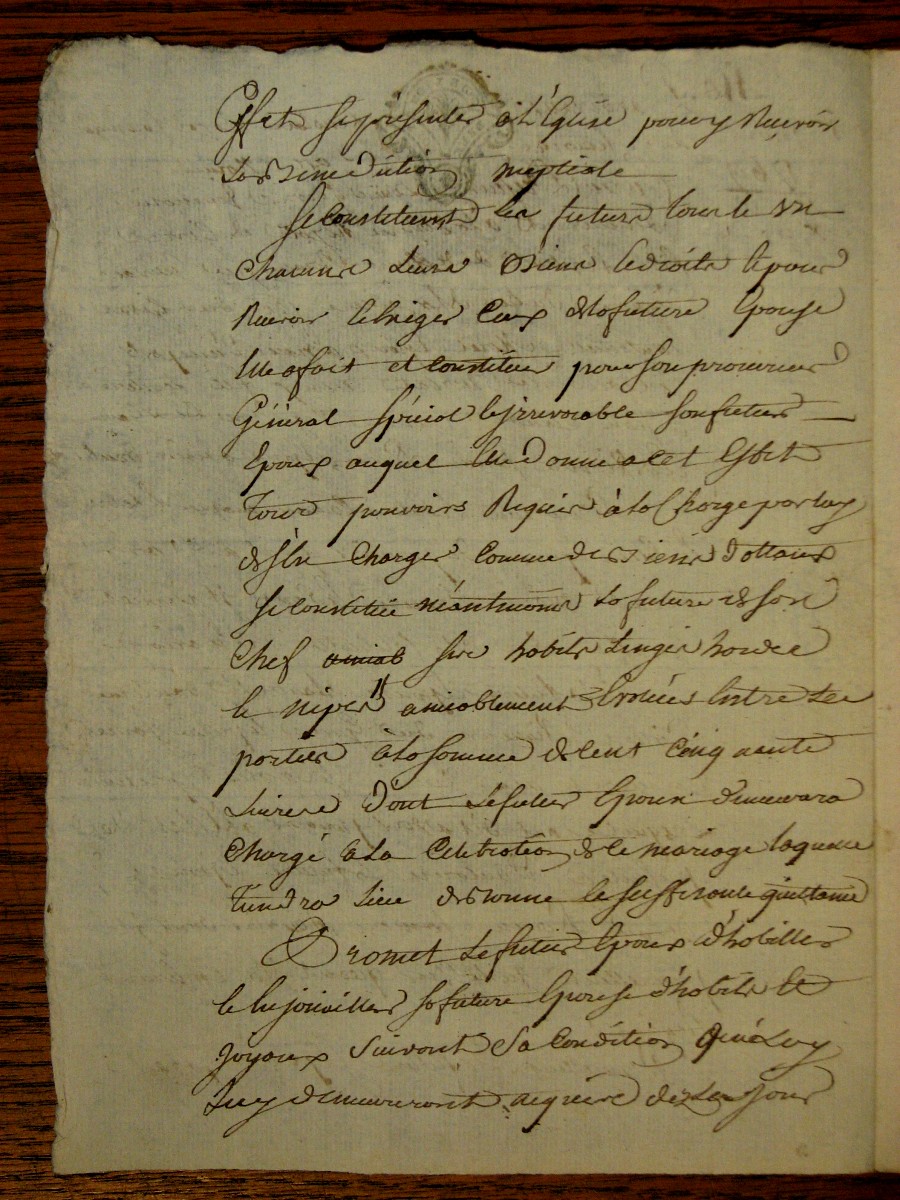 Effet se présenter à l'Eglise pour y Recevoir
La Bénédiction nuptiale
Se Constituent les futurs tous le un
Chacune Leurs Biens et droits et pour
Recevoir et Exiger Ceux de la future Epouse
Elle a fait et Constitué pour son procureur
Général Spécial et irrevocable Son futur
Epoux auquel Elle donne a cet Effet
Tous pouvoirs Requis à la Charge par luy
de s'En Charger Comme des siens Dottaux
Se Constitue néantmoins La future de son
Chef ses habits Linges hardes
et nipes amiablement Evalués Entre Les
parties à la somme de Cent Cinquante
Livres Dont Le futur Epoux demeurera
Chargé à la Célébration de Ce mariage laquelle
Tiendra Lieu de Bonne et suffisante quittance
Promet Le futur Epoux d'habiller
et Enjoailler sa future Epouse d'habits et
Joyaux Suivant Sa Condition
Luy demeureront acquis dès Leur Jour